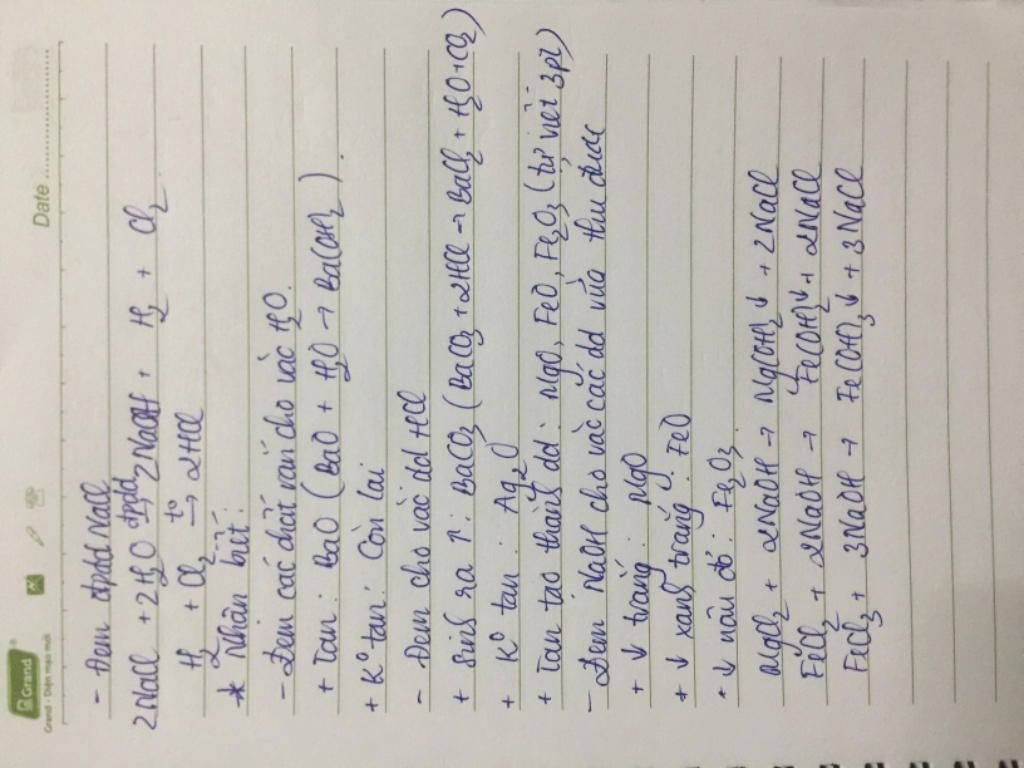 Grand
Grand - Diện mạo mới
Date
- Đem đpdd NaCl
2NaCl + 2H2O đpdd→ 2NaOH + H2 + Cl2
H2 + Cl2 t°→ 2HCl
* Nhận biết:
- Đem các chất rắn cho vào H2O.
+ Tan: BaO (BaO + H2O → Ba(OH)2).
+ K° tan: Còn lại
- Đem cho vào dd HCl
+ Sinh ra ↑: BaCO3 (BaCO3 + 2HCl → BaCl2 + H2O + CO2)
+ K° tan: Ag2O
+ Tan tạo thành dd: MgO, FeO, Fe2O3 (tự viết 3pt)
- Đem NaOH cho vào các dd vừa thu được
+ ↓ trắng: MgO
+ ↓ xanh trắng: FeO
+ ↓ nâu đỏ: Fe2O3
MgCl2 + 2NaOH → Mg(OH)2↓ + 2NaCl
FeCl2 + 2NaOH → Fe(OH)2↓ + 2NaCl
FeCl3 + 3NaOH → Fe(OH)3↓ + 3NaCl